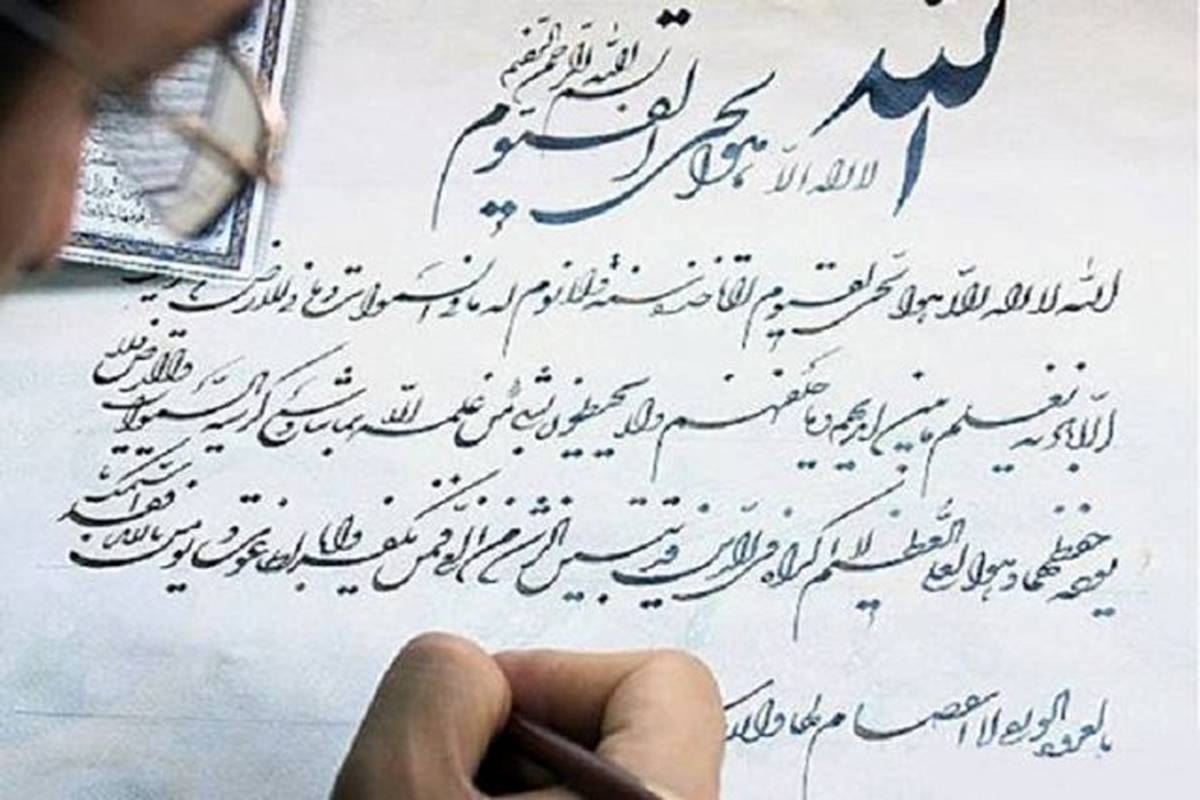 بسم الله الرحمن الرحیم
الله لا اله الا هو الحی القیوم
الله لا اله الا هو الحی القیوم لا تاخذه سنة ولا نوم له ما فی السموات وما فی الارض
الا باذنه یعلم ما بین ایدیهم وما خلفهم ولا یحیطون بشیء من علمه الا بما شاء وسع کرسیه السموات والارض ولا
یوده حفظهما وهو العلی العظیم لا اکراه فی الدین قد تبین الرشد من الغی فمن یکفر بالطاغوت و یومن بالله فقد استمسک
بالعروة الوثقی لا انفصام لها والله